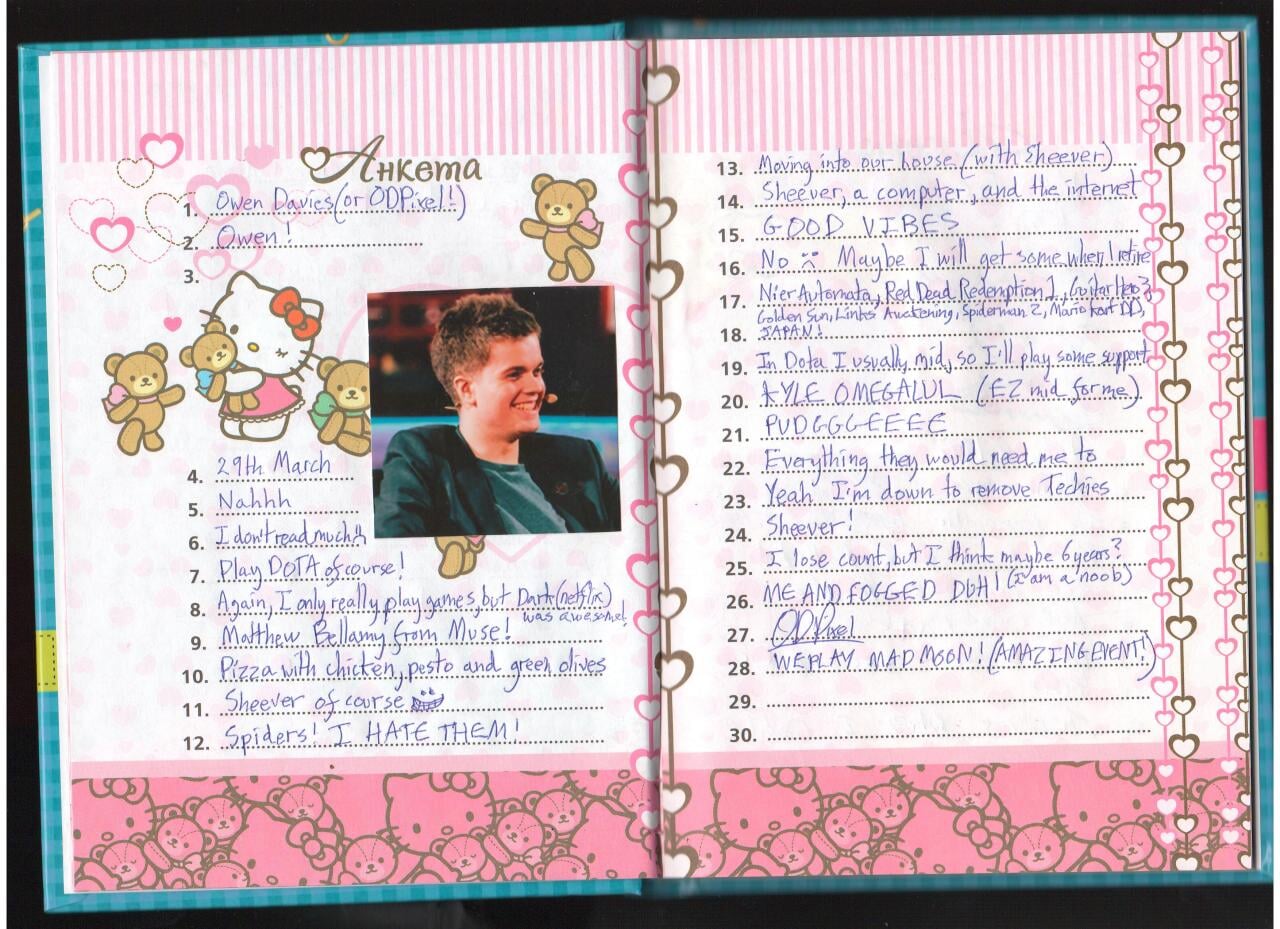 Анкета
1. Owen Davies (or ODPixel!)
2. Owen!
3.
4. 29th March
5. Nahhh
6. I don't read much :(
7. Play DOTA of course!
8. Again, I only really play games, but Dark (netflix)
was awesome!
9. Matthew Bellamy from Muse!
10. Pizza with chicken, pesto and green olives
11. Sheever of course
12. Spiders! I HATE THEM!
13. Moving into our house (with Sheever)
14. Sheever, a computer, and the internet
15. GOOD VIBES
16. No :( Maybe I will get some when I retire
17. Nier Automata, Red Dead Redemption 1, Guitar Hero 3,
Golden Sun, Links Awakening, Spiderman 2, Mario Kart DD,
18. JAPAN!
19. In Dota I usually mid, so I'll play some support
20. KYLE OMEGALUL (EZ mid for me)
21. PUDGGGEEEE
22. Everything they would need me to
23. Yeah I'm down to remove Techies
24. Sheever!
25. I lose count, but I think maybe 6 years?
26. ME AND FOGGED DUH! (I am a noob)
27. ODPixel
28. WEPLAY MAD MOON! (AMAZING EVENT!)
29.
30.